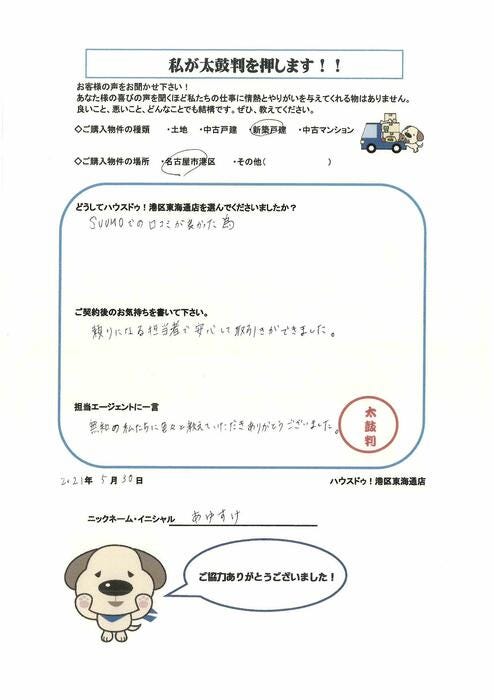 私が太鼓判を押します！！
お客様の声をお聞かせ下さい！
あなた様の喜びの声を聞くほど私たちの仕事に情熱とやりがいを与えてくれる物はありません。
良いこと、悪いこと、どんなことでも結構です。ぜひ、教えてください。
◇ご購入物件の種類 ・土地 ・中古戸建 ・新築戸建 ・中古マンション
◇ご購入物件の場所 ・名古屋市港区 ・その他( )
どうしてハウスドゥ！港区東海通店を選んでくださいましたか？
SUUMOでの口コミが良かった為
ご契約後のお気持ちを書いて下さい。
頼りになる担当者で安心して取引きができました。
担当エージェントに一言
無知の私たちに色々と教えていただきありがとうございました。
太鼓判
2021年 5月 30日 ハウスドゥ！港区東海通店
ニックネーム・イニシャル あゆすけ
ご協力ありがとうございました！